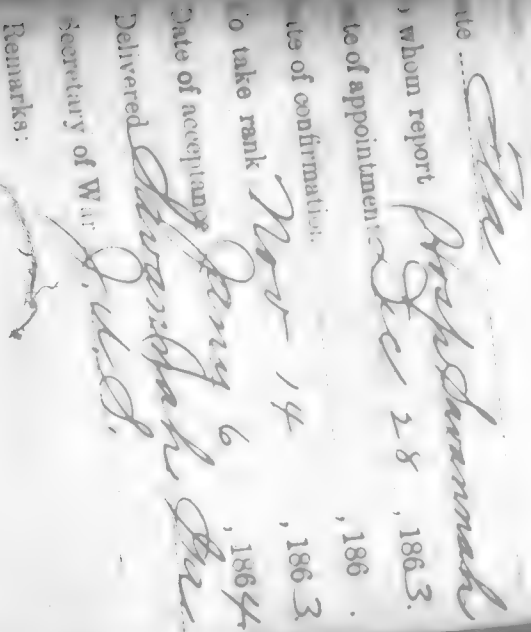 ate Ga
whom report Hosp Savannah
te of appointment Dec 28, 1863.
ate of confirmation , 186 .
To take rank Nov 14, 1863
Date of acceptance Jany 6, 1864
Delivered Savannah Ga
Secretary of War J. A. S.
Remarks: